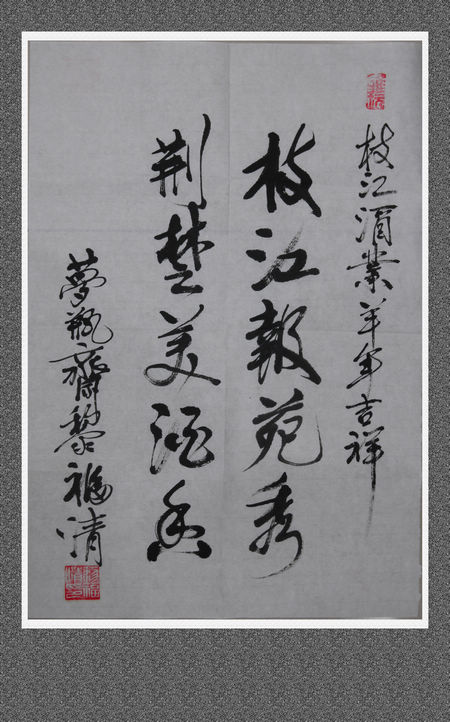 枝江酒業羊年吉祥
枝江報苑秀
荆楚美酒香
夢瓶齋黎福清